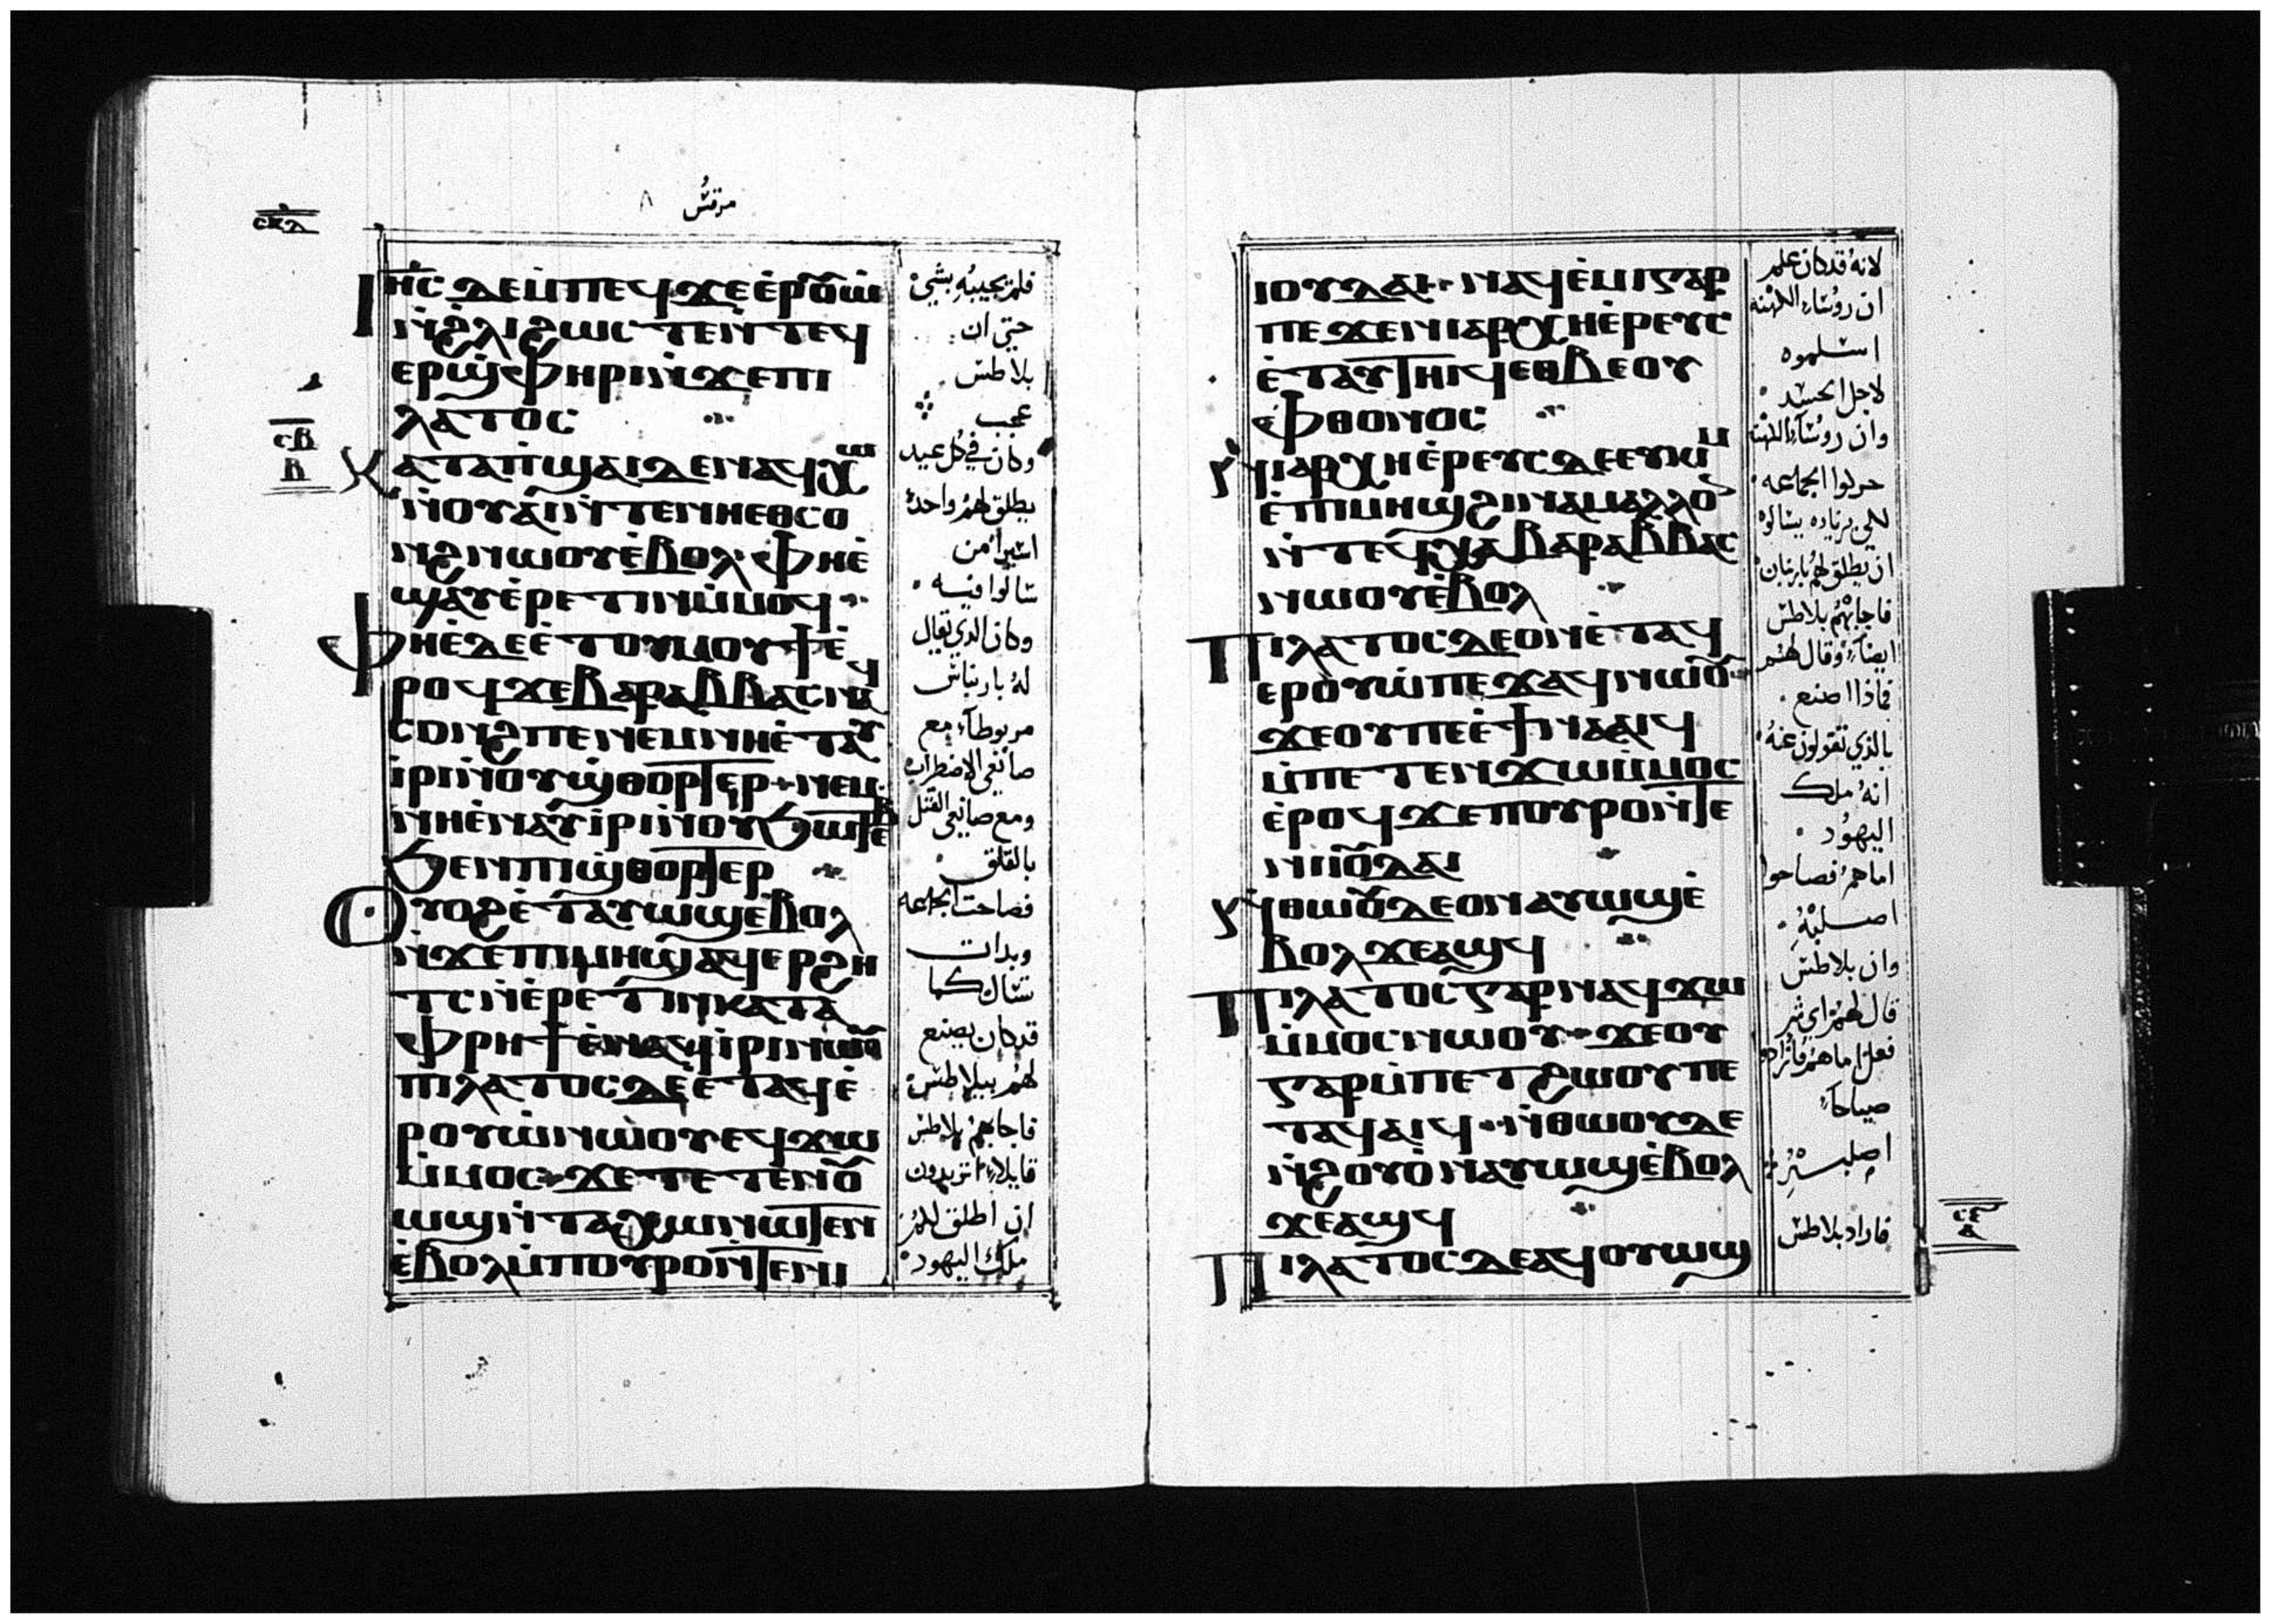 مرقس ٨
ⲥⲕⲇ
ⲥⲃ
ⲃ
Ⲓⲏ̄ⲥ ⲇⲉ ⲙ̇ⲡⲉϥϫⲉ ⲉ̇ⲣⲟⲩⲱ
ⲛ̇ϩⲗⲓ ϩⲱⲥⲧⲉ ⲛ̇ⲧⲉϥ
ⲉⲣϣⲫⲏⲣⲓ ⲛ̇ϫⲉ ⲡⲓ
ⲗⲁⲧⲟⲥ
Ⲕⲁⲧⲁ ⲡ̇ϣⲁⲓ ⲇⲉ ⲛⲁϥⲭⲱ
ⲛ̇ⲟⲩⲁⲓ ⲛ̇ⲧⲉ ⲛⲏⲉⲑⲥⲟ
ⲛϩ ⲛⲱⲟⲩ ⲉ̇ⲃⲟⲗ ⲫⲏⲉ̇
ϣⲁⲩⲉ̇ⲣⲉⲧⲓⲛ ⲙ̇ⲙⲟϥ
Ⲫⲏⲉ̇ ⲇⲉ ⲉ̇ⲧⲟⲩⲙⲟⲩϯ ⲉ̇
ⲣⲟϥ ϫⲉ ⲃⲁⲣⲁⲃⲃⲁⲥ ⲛⲁϥ
ⲥⲟⲛϩ ⲡⲉ ⲛⲉⲙ ⲛⲏⲉ̇ⲧⲁⲩ
ⲓ̇ⲣⲓ ⲛ̇ⲟⲩϣ̇ⲑⲟⲣⲧⲉⲣ ⲛⲉⲙ
ⲛⲏⲉ̇ⲛⲁⲩⲓ̇ⲣⲓ ⲛ̇ⲟⲩϧⲱⲧⲉⲃ
ϧⲉⲛ ⲡⲓϣ̇ⲑⲟⲣⲧⲉⲣ
Ⲟⲩⲟϩ ⲉ̇ⲧⲁⲩⲱϣ ⲉ̇ⲃⲟⲗ
ⲛ̇ϫⲉ ⲡⲓⲙⲏϣ ⲁϥⲉⲣϩⲏ
ⲧⲥ ⲛ̇ⲉ̇ⲣⲉⲧⲓⲛ ⲕⲁⲧⲁ
ⲫⲣⲏϯ ⲉ̇ⲛⲁϥⲓ̇ⲣⲓ ⲛⲱⲟⲩ
ⲡⲓⲗⲁⲧⲟⲥ ⲇⲉ ⲉ̇ⲧⲁϥⲉ̇
ⲣⲟⲩⲱ̇ ⲛⲱⲟⲩ ⲉϥϫⲱ
ⲙ̇ⲙⲟⲥ ϫⲉ ⲧⲉⲧⲉⲛⲟⲩ
ⲱϣ ⲛ̇ⲧⲁⲭⲱ ⲛⲱⲧⲉⲛ
ⲉ̇ⲃⲟⲗ ⲙ̇ⲡⲟⲩⲣⲟ ⲛ̇ⲧⲉ ⲛⲓ
فلم يجيبه بشي
حتي ان
بلاطس
عجب
وكان في كل عيد
يطلق لهم واحدا
اسيرا من
سالوا فيه
وكان الذي يقال
له بارنباس
مربوطا مع
صانعي الاضطراب
ومع صانعي القتل
بالقلق
فصاحت الجماعه
وبدات
تسال كما
قد كان يصنع
لهم بيلاطس
فاجابهم بلاطس
قايلا اتريدون
ان اطلق لكم
ملك اليهود
ⲓⲟⲩⲇⲁⲓ ⲛⲁϥⲉ̇ⲙⲓ ⲅⲁⲣ
ⲡⲉ ϫⲉ ⲛⲓⲁⲣⲭⲏⲉ̇ⲣⲉⲩⲥ
ⲉ̇ⲧⲁⲩⲧⲏⲓϥ ⲉⲑⲃⲉ ⲟⲩ
ⲫⲑⲟⲛⲟⲥ
Ⲛⲓⲁⲣⲭⲏⲉ̇ⲣⲉⲩⲥ ⲇⲉ ⲉⲩⲕⲓⲙ
ⲉ̇ⲡⲓⲙⲏϣ ϩⲓⲛⲁ ⲙⲁⲗⲗⲟⲛ
ⲛ̇ⲧⲉϥⲭⲁ ⲃⲁⲣⲁⲃⲃⲁⲥ
ⲛⲱⲟⲩ ⲉ̇ⲃⲟⲗ
Ⲡⲓⲗⲁⲧⲟⲥ ⲇⲉ ⲟⲛ ⲉ̇ⲧⲁϥ
ⲉⲣⲟⲩⲱ̇ ⲡⲉϫⲁϥ ⲛⲱⲟⲩ
ϫⲉ ⲟⲩ ⲡⲉ ⲉ̇ϯⲛⲁⲁⲓϥ
ⲙ̇ⲡⲉⲧⲉⲛϫⲱ ⲙ̇ⲙⲟⲥ
ⲉ̇ⲣⲟϥ ϫⲉ ⲡⲟⲩⲣⲟ ⲛ̇ⲧⲉ
ⲛⲓⲓⲟⲩⲇⲁⲓ
Ⲛ̇ⲑⲱⲟⲩ ⲇⲉ ⲟⲛ ⲁⲩⲱϣ ⲉ̇
ⲃⲟⲗ ϫⲉ ⲁϣϥ
Ⲡⲓⲗⲁⲧⲟⲥ ⲅⲁⲣ ⲛⲁϥϫⲱ
ⲙ̇ⲙⲟⲥ ⲛⲱⲟⲩ ϫⲉ ⲟⲩ
ⲅⲁⲣ ⲙ̇ⲡⲉⲧϩⲱⲟⲩ ⲡⲉ
ⲧⲁϥⲁⲓϥ ⲛ̇ⲑⲱⲟⲩ ⲇⲉ
ⲛ̇ϩⲟⲩⲟ̇ ⲛⲁⲩⲱϣ ⲉ̇ⲃⲟⲗ
ϫⲉ ⲁ̇ϣϥ
Ⲡⲓⲗⲁⲧⲟⲥ ⲇⲉ ⲁϥⲟⲩⲱϣ
لانه قد كان علم
ان روسا الكهنه
اسلموه
لاجل الحسد
وان روسا الكهنه
حركوا الجماعه
لكي بزياده يسالوه
ان يطلق لهم بارنبان
فاجابهم بلاطس
ايضا وقال لهم
فماذا اصنع
بالذي تقولون عنه
انه ملك
اليهود
اما هم فصاحوا
اصلبه
وان بلاطس
قال لهم اي شر
فعل اما هم فازادوا
صياحا
فاراد بلاطس